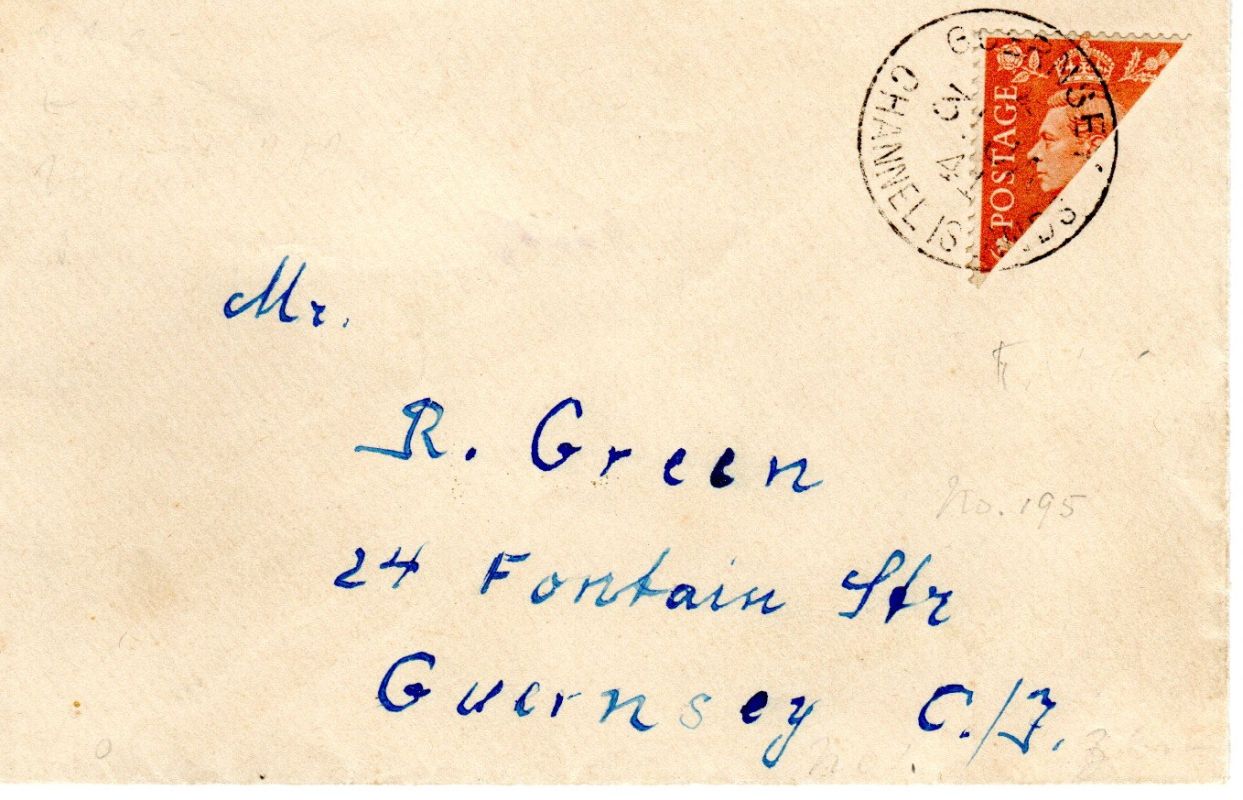 GUERNSEY
CHANNEL ISLANDS
POSTAGE
Mr.
R. Green
No. 195
24 Fontain Str
Guernsey C./I.